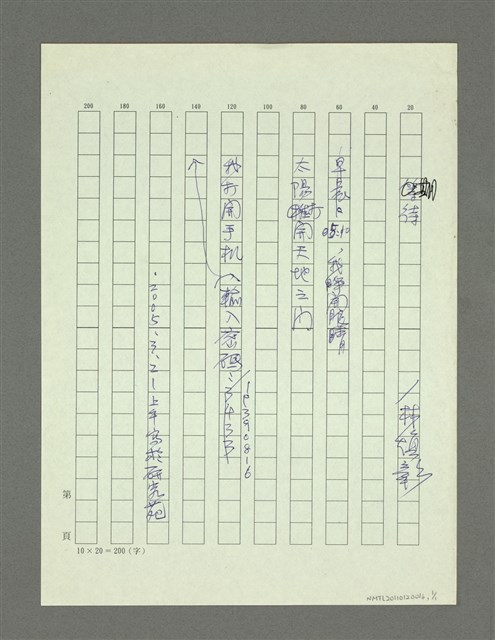 200 180 160 140 120 100 80 60 40 20
等待
/林煥彰
早晨05:10,我睜開眼睛
太陽打開天地之門
我打開手机
輸入密碼:/19390816
・2005.3.21上午寫於研究苑
第 頁
10×20=200(字)
NMTL20110120016,1/1